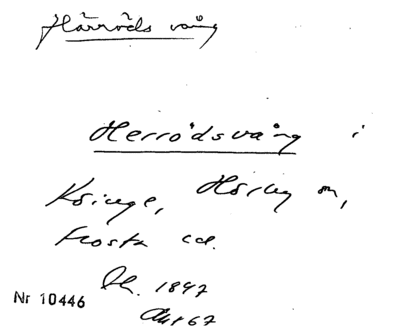 Härröds vång
Herrödsvång i
Kringe, Hörby sn,
Frosta hd.
1847
Nr 10446